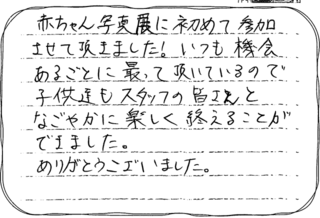 赤ちゃん写真展に初めて参加
させて頂きました！いつも機会
あるごとに撮って頂いているので
子供達もスタッフの皆さんと
なごやかに楽しく終えることが
できました。
ありがとうございました。